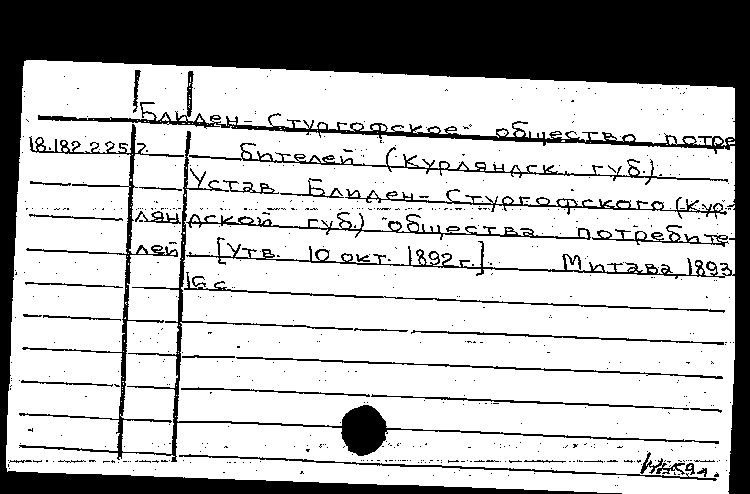 Блиден-Стургофское общество потре
18.182.225.2 бителей (Курляндск. губ.).
Устав Блиден-Стургофского (Кур-
ляндской губ.) общества потребите-
лей. [Утв. 10 окт. 1892 г.]. Митава, 1893
16 с.